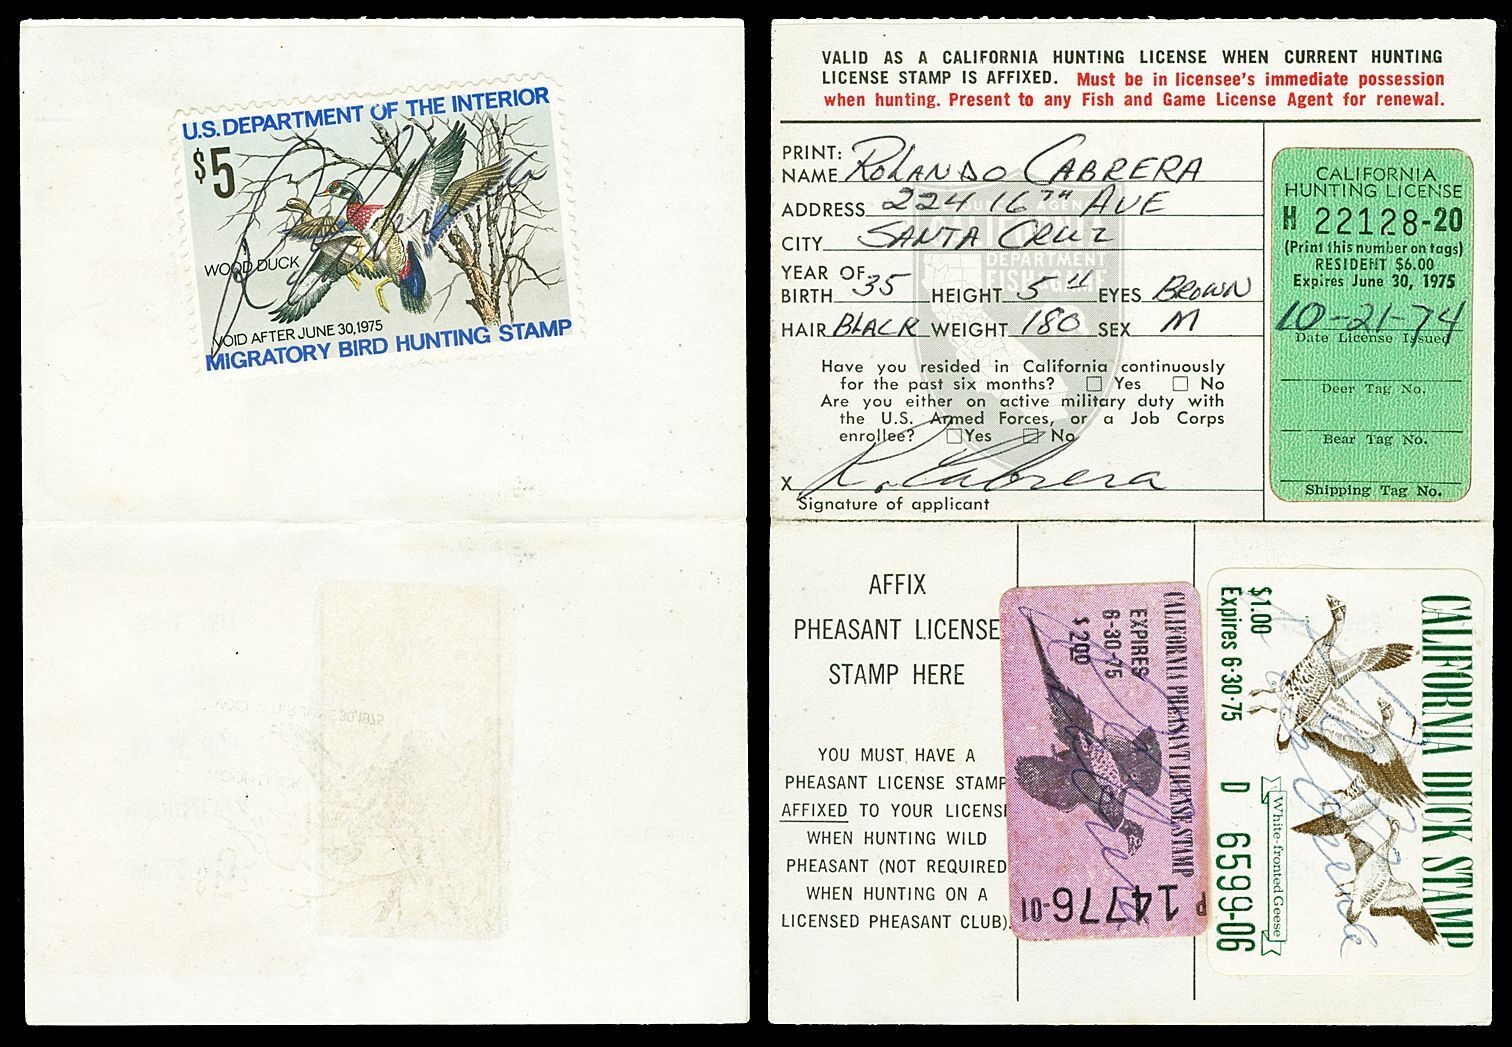 U.S. DEPARTMENT OF THE INTERIOR
$5
WOOD DUCK
VOID AFTER JUNE 30, 1975
MIGRATORY BIRD HUNTING STAMP
VALID AS A CALIFORNIA HUNTING LICENSE WHEN CURRENT HUNTING
LICENSE STAMP IS AFFIXED. Must be in licensee's immediate possession
when hunting. Present to any Fish and Game License Agent for renewal.
PRINT:
NAME ROLANDO CABRERA
ADDRESS 224 16TH AVE
CITY SANTA CRUZ
YEAR OF
BIRTH 35 HEIGHT 5 11 EYES BROWN
HAIR BLACK WEIGHT 180 SEX M
DEPARTMENT
FISH GAME
Have you resided in California continuously
for the past six months? Yes No
Are you either on active military duty with
the U.S. Armed Forces, or a Job Corps
enrollee? Yes No
X R. Cabrera
Signature of applicant
CALIFORNIA
HUNTING LICENSE
H 22128-20
(Print this number on tags)
RESIDENT $6.00
Expires June 30, 1975
10-21-74
Date License Issued
Deer Tag No.
Bear Tag No.
Shipping Tag No.
AFFIX
PHEASANT LICENSE
STAMP HERE
YOU MUST HAVE A
PHEASANT LICENSE STAMP
AFFIXED TO YOUR LICENSE
WHEN HUNTING WILD
PHEASANT (NOT REQUIRED
WHEN HUNTING ON A
LICENSED PHEASANT CLUB).
CALIFORNIA PHEASANT LICENSE STAMP
EXPIRES
6-30-75
$2.00
P 14776-01
CALIFORNIA DUCK STAMP
$1.00
Expires 6-30-75
White-fronted Geese
D 6599-06